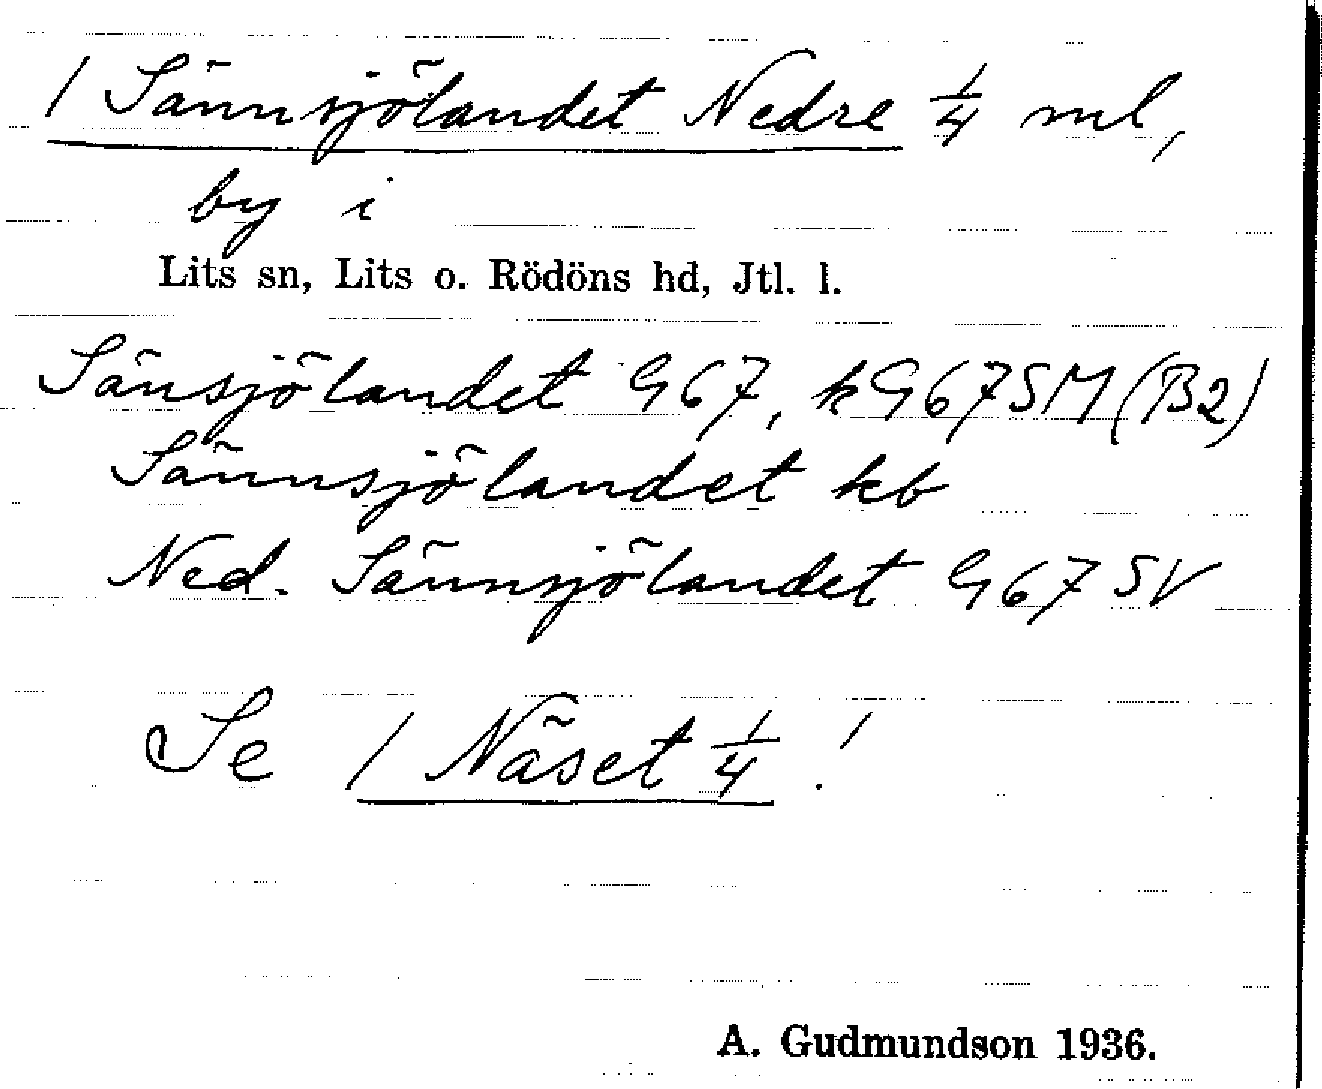 / Sännsjölandet Nedre 1/4 ml,
by i
Lits sn, Lits o. Rödöns hd, Jtl. l.
Sänsjölandet G67, kG67SM(B2)
Sännsjölandet kb
Ned. Sännsjölandet G67SV
Se / Näset 1/4 !
A. Gudmundson 1936.